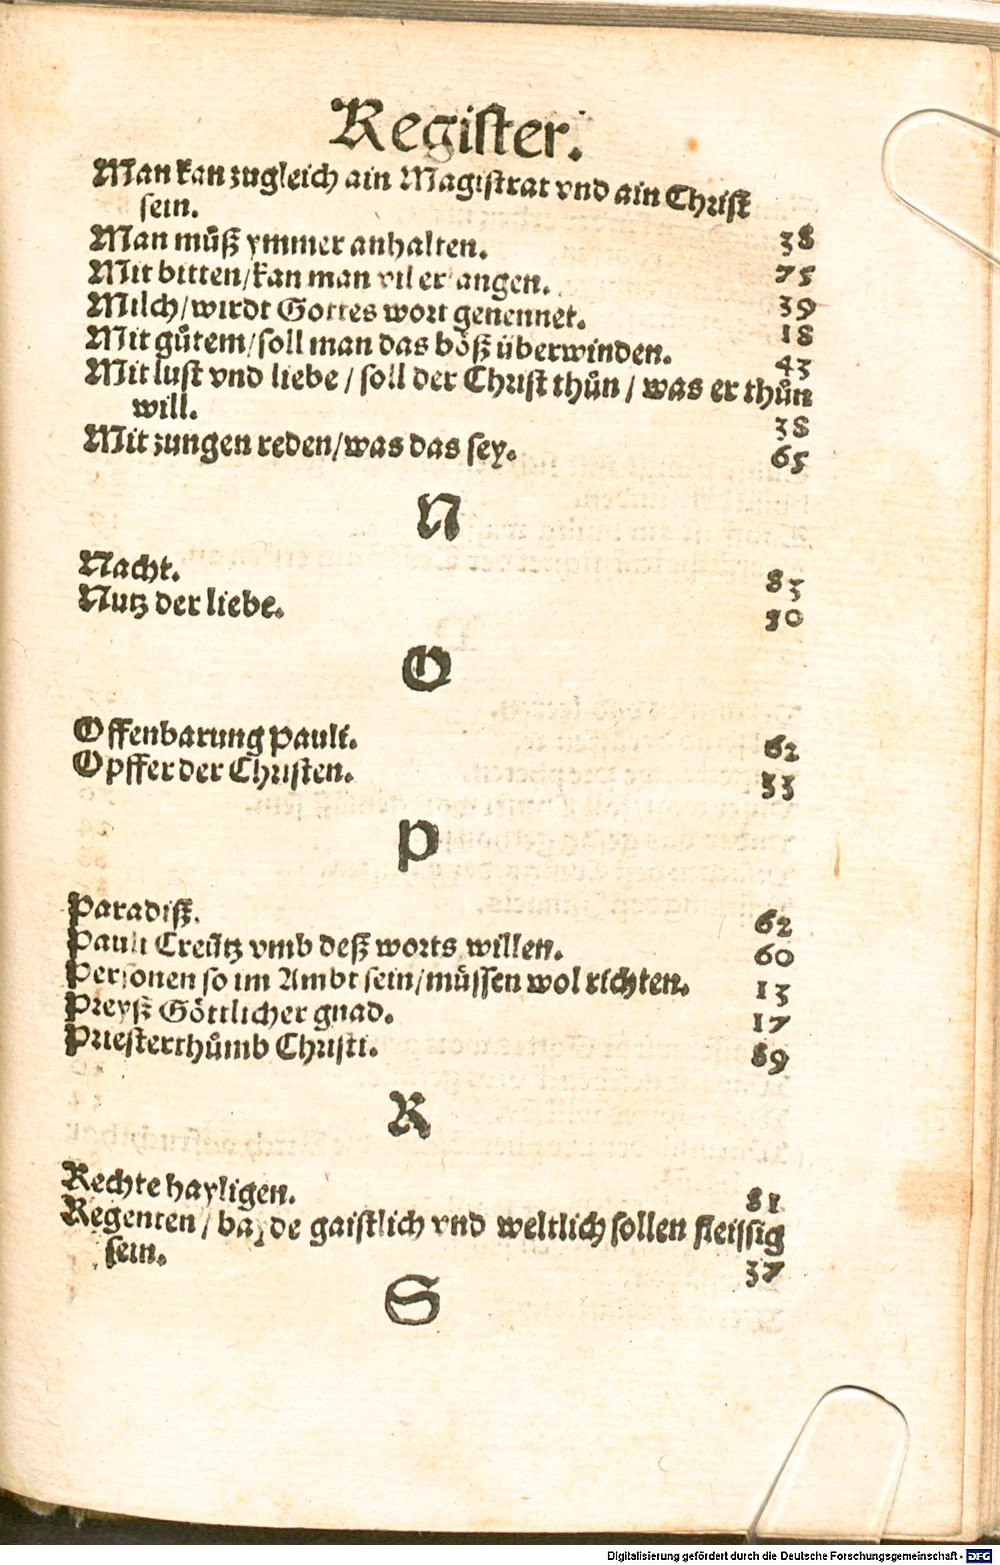 Regiſter.
Man kan zugleich ain Magiſtrat vnd ain Chriſt
ſein. 38
Man muͤß ymmer anhalten. 75
Mit bitten/kan man vil erlangen. 39
Milch/wirdt Gottes wort genennet. 18
Mit guͤtem/ſoll man das boͤß uͤberwinden. 43
Mit luſt vnd liebe / ſoll der Chriſt thuͦn / was er thuͦn
will. 38
Mit zungen reden/was das ſey. 65
N
Nacht. 83
Nutz der liebe. 50
O
Offenbarung Pauli. 62
Opffer der Chriſten. 33
P
Paradiß. 62
Pauli Creütz vmb deß worts willen. 60
Perſonen so im Ambt ſein/muͤſſen wol richten. 13
Preyß Goͤttlicher gnad. 17
Prieſterthuͦmb Chriſti. 89
R
Rechte hayligen. 81
Regenten / bayde gaiſtlich vnd weltlich ſollen fleiſſig
ſein. 37
S
Digitalisierung gefördert durch die Deutsche Forschungsgemeinschaft - DFG